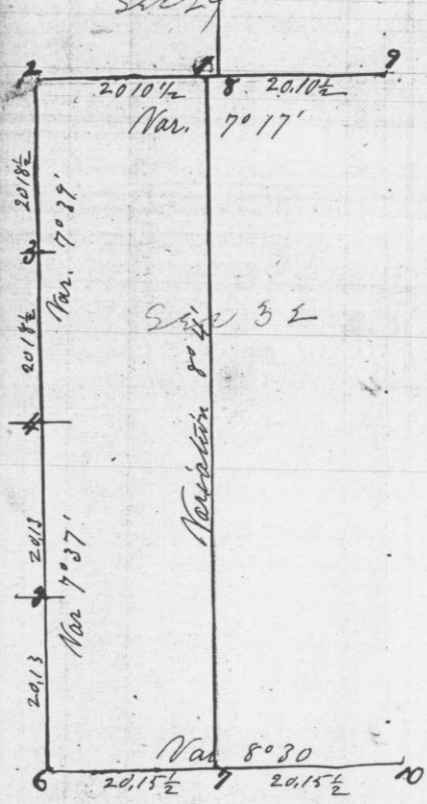 Sec 29
2 8 9
20 10 1/2 20.10 1/2
Var. 7° 17'
20 18 1/2
3
Var. 7° 39'
20 18 1/2
Sec 32
Variation 8° 4'
4
20,13
Var 7° 37'
20,13
Var 8° 30
6 7 10
20,15 1/2 20,15 1/2